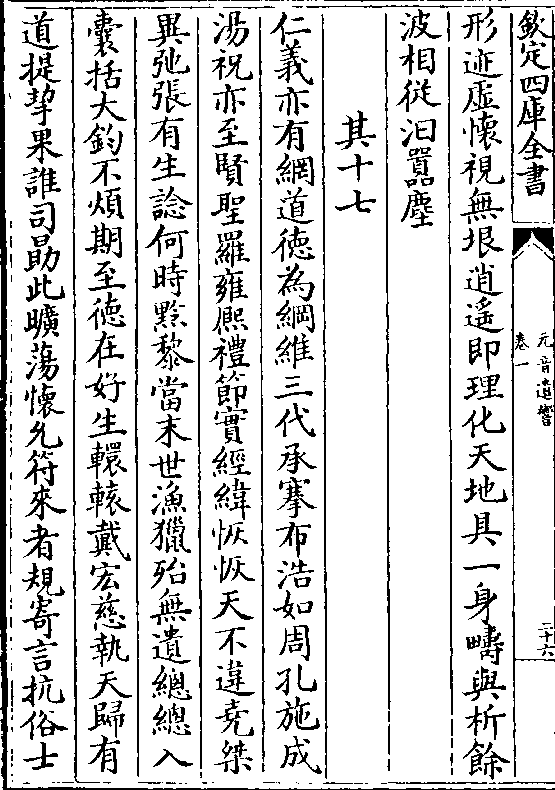 欽定四庫全書
元音遺響
卷一
二十六
形迹虛懷視無垠逍遙即理化天地具一身疇與析餘
波相從汩囂塵
其十七
仁義亦有網道德為綱維三代承搴布浩如周孔施成
湯祝亦至賢聖羅雍熈禮節實經緯恢恢天不違堯桀
異弛張有生諗何時黔黎當末世漁獵殆無遺總總入
囊括大鈞不煩期至徳在好生轘轅戴宏慈執天歸有
道提挈果誰司勗此曠蕩懷允符來者規寄言抗俗士